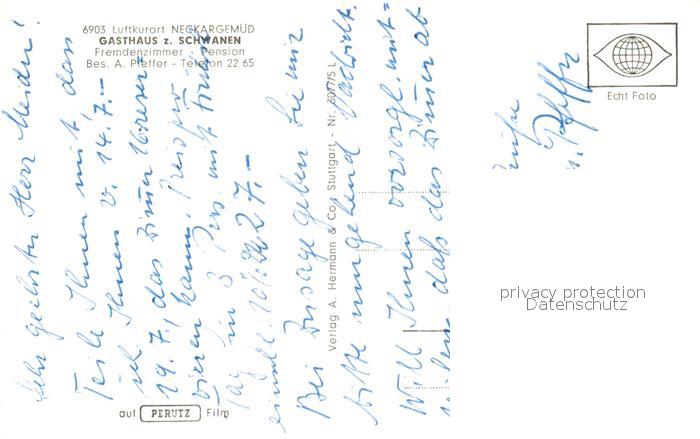 6903 Luftkurort NECKARGEMÜD
GASTHAUS z. SCHWANEN
Fremdenzimmer - Pension
Bes. A. Pfeffer - Telefon 22 65
Sehr geehrter Herr
Teile Ihnen mit, dass
ich Ihnen v. 14.7.-
19.7., das Zimer
kann. Preis pro
Tag in 3 Pers. mit
27.-
Bei Zusage geben Sie mir
bitte umgehend Nachricht.
Will Ihnen vorsorgl. mit=
daß das Zimer ab
Pfeffer
Verlag A. Hermann & Co, Stuttgart - Nr. 3077/5 L
auf PERUTZ Film
Echt Foto
privacy protection
Datenschutz